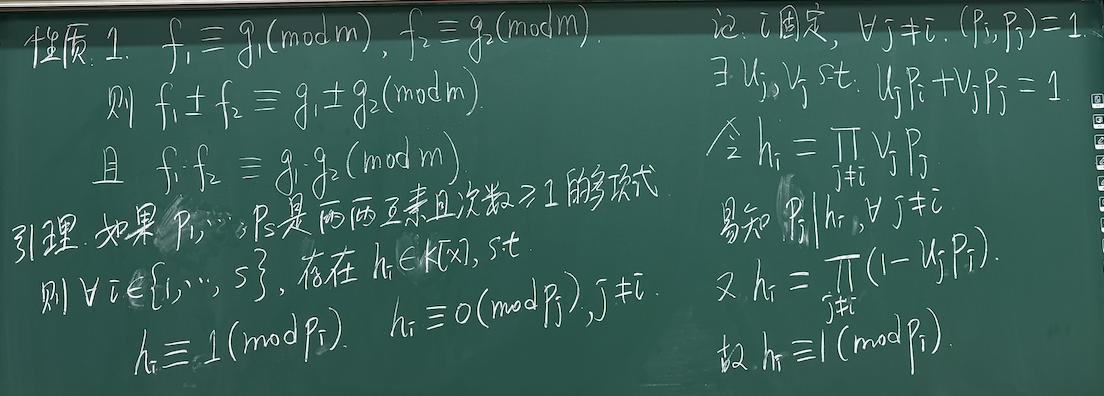 性质. 1. f₁ ≡ g₁(mod m), f₂ ≡ g₂(mod m).
则 f₁ ± f₂ ≡ g₁ ± g₂(mod m).
且 f₁·f₂ ≡ g₁·g₂(mod m).
引理. 如果 p₁, ⋯, pₛ是两两互素且次数≥1的多项式
则 ∀i∈{1, ⋯, s}, 存在 hᵢ∈K[x], s.t
hᵢ ≡ 1(mod pᵢ). hᵢ ≡ 0(mod pⱼ), j≠i.
记. i固定, ∀j≠i. (pᵢ, pⱼ)=1.
∃ uⱼ, vⱼ s.t. uⱼpᵢ + vⱼpⱼ = 1.
令 hᵢ = ∏_{j≠i} vⱼpⱼ
易知. pⱼ|hᵢ, ∀ j≠i.
又. hᵢ = ∏_{j≠i}(1 - uⱼpᵢ).
故. hᵢ ≡ 1(mod pᵢ).